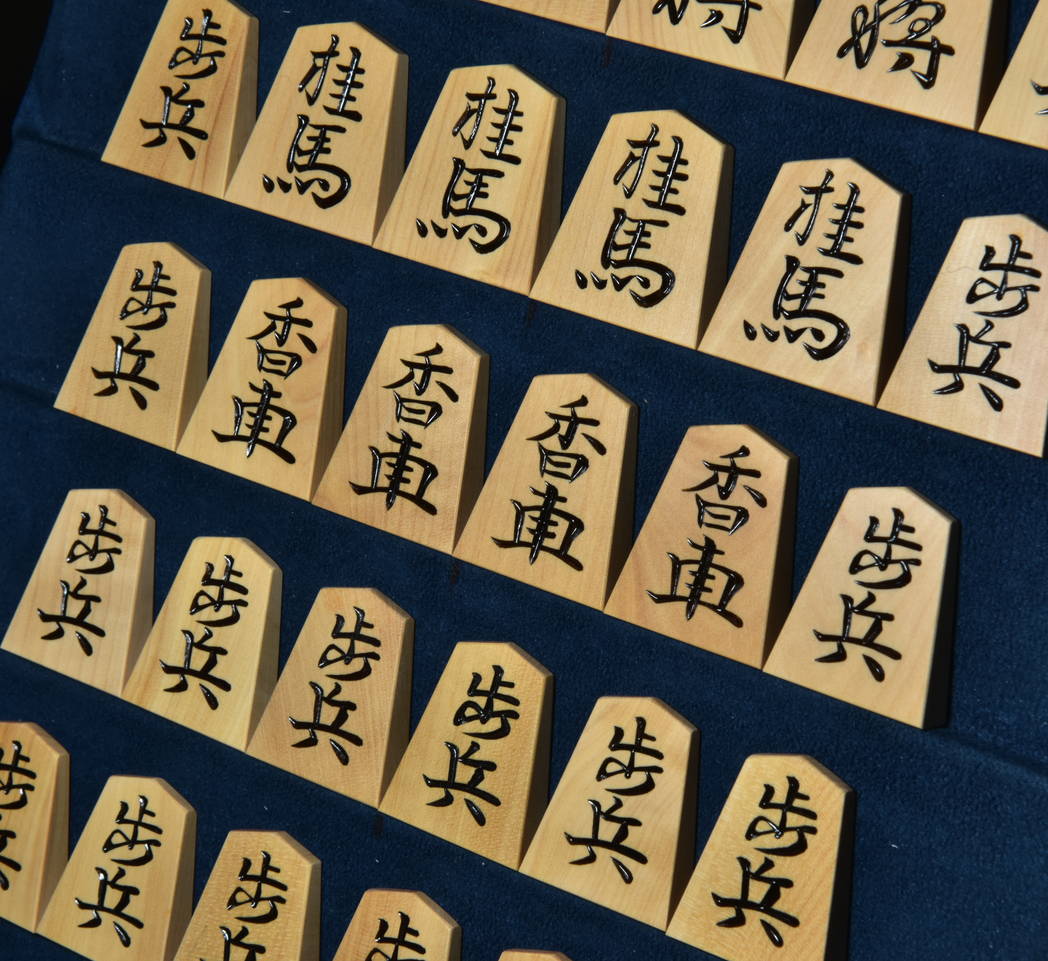 将 将
歩兵 桂馬 桂馬 桂馬 桂馬 歩兵
歩兵 香車 香車 香車 香車 歩兵
歩兵 歩兵 歩兵 歩兵 歩兵 歩兵
歩兵 歩兵 歩兵 歩